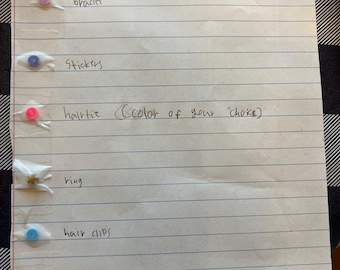 braclet
stickers
hairtie (Ccolor of your choice)
ring
hair clips